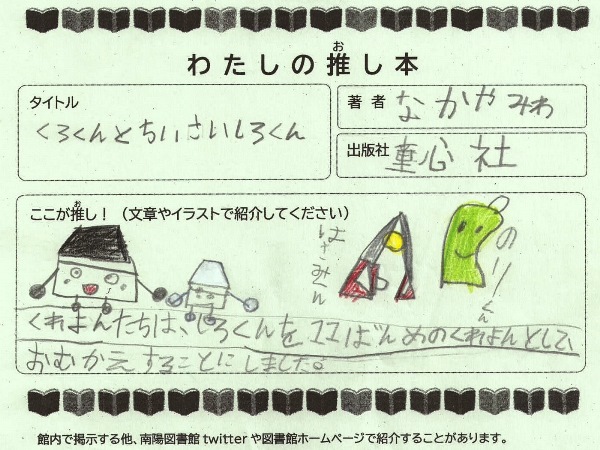 わたしの推し本
お
タイトル
くろくんとちいさいしろくん
著者 なかやみわ
出版社 童心社
ここが推し！（文章やイラストで紹介してください）
お
はさみくん
のりーくん
くれよんたちは、しろくんを11ばんめのくれよんとして、
おむかえすることにしました。
館内で掲示する他、南陽図書館twitterや図書館ホームページで紹介することがあります。